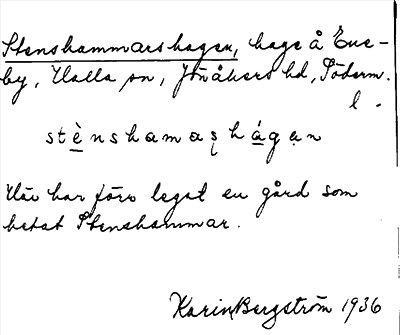 Stenshammarshagen, hage å Ene-
by, Halla sn, Jönåkers hd, Söderm.
l.
stènshamaşhágən
Här har förr legat en gård som
hetat Stenshammar.
Karin Bergström 1936